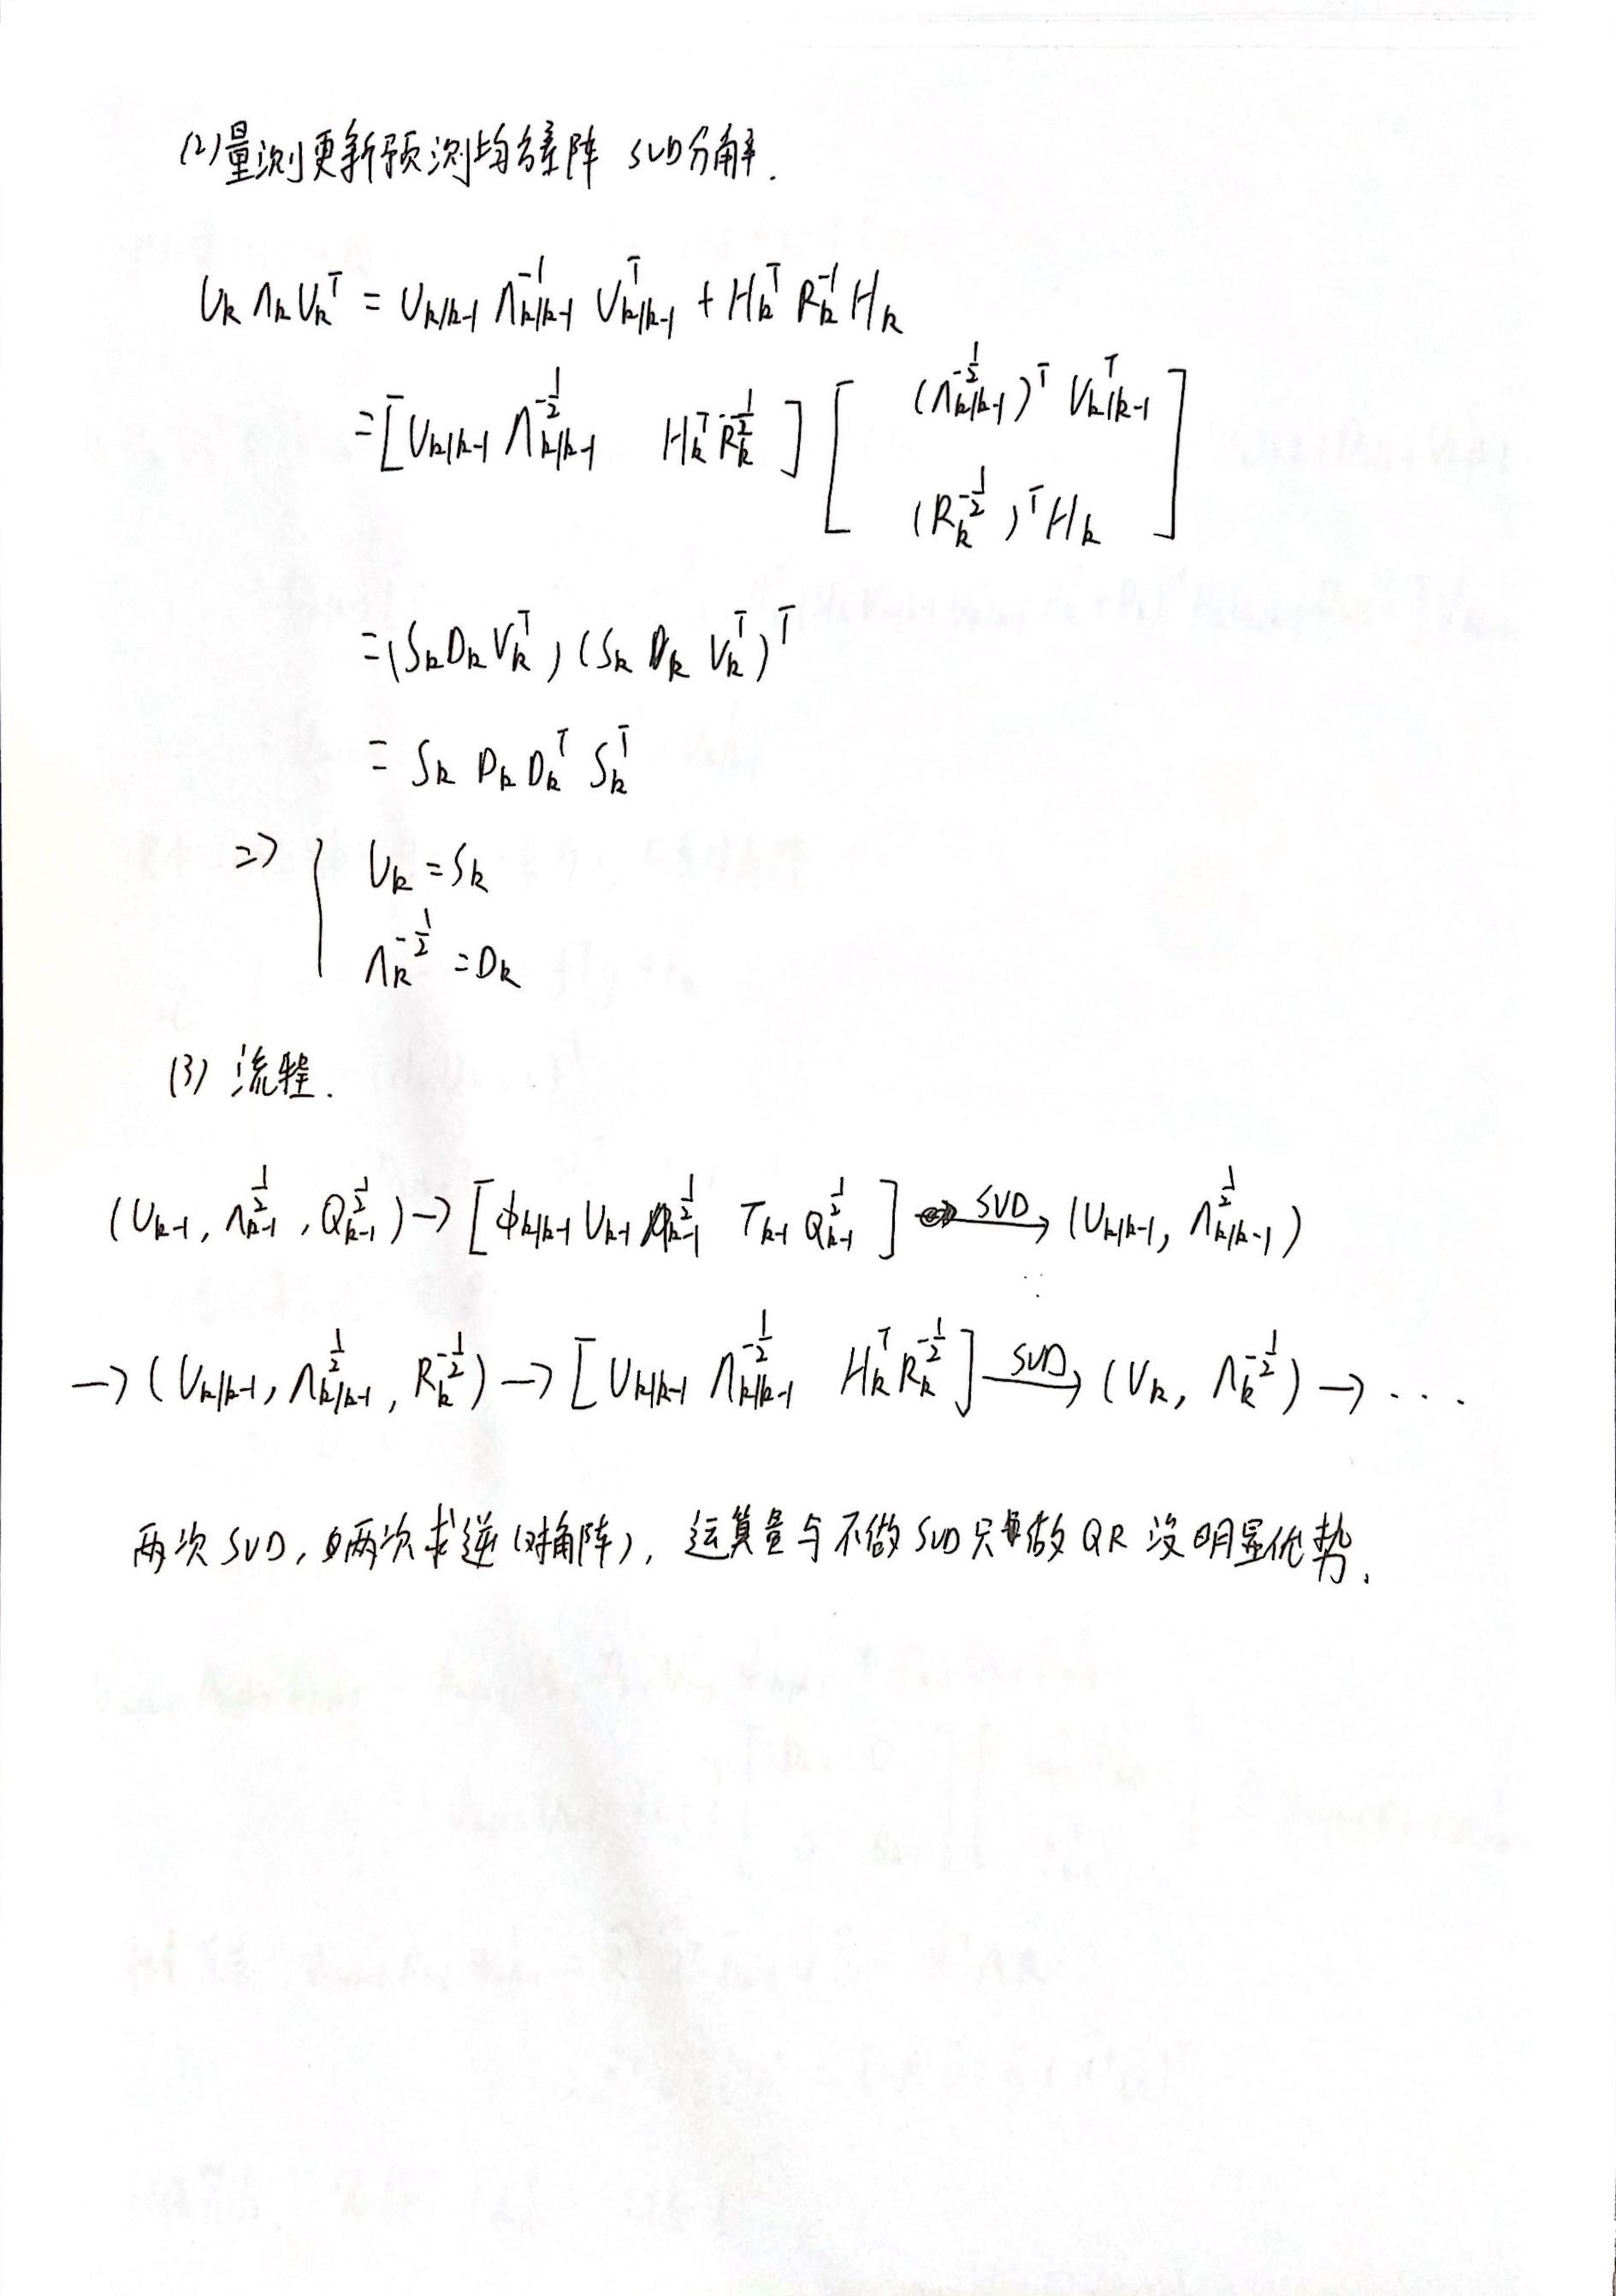 (2)量测更新预测均方误差阵 SVD分解.
U_k Λ_k U_k^T = U_{k/k-1} Λ_{k/k-1}^{-1} U_{k/k-1}^T + H_k^T R_k^{-1} H_k
= [U_{k/k-1} Λ_{k/k-1}^{-1/2} H_k^T R_k^{-1/2}] [(Λ_{k/k-1}^{-1/2})^T U_{k/k-1}^T
(R_k^{-1/2})^T H_k]
= (S_k D_k V_k^T)(S_k D_k V_k^T)^T
= S_k D_k D_k^T S_k^T
=> { U_k = S_k
Λ_k^{-1/2} = D_k
(3) 流程.
(U_{k-1}, Λ_{k-1}^{1/2}, Q_{k-1}^{1/2}) → [Φ_{k/k-1} U_{k-1} Λ_{k-1}^{1/2} Γ_{k-1} Q_{k-1}^{1/2}] SVD→ (U_{k/k-1}, Λ_{k/k-1}^{1/2})
→ (U_{k/k-1}, Λ_{k/k-1}^{1/2}, R_k^{-1/2}) → [U_{k/k-1} Λ_{k/k-1}^{-1/2} H_k^T R_k^{-1/2}] SVD→ (U_k, Λ_k^{-1/2}) → ....
两次 SVD, 两次求逆(对角阵), 运算量与不做SVD只做QR没明显优势.